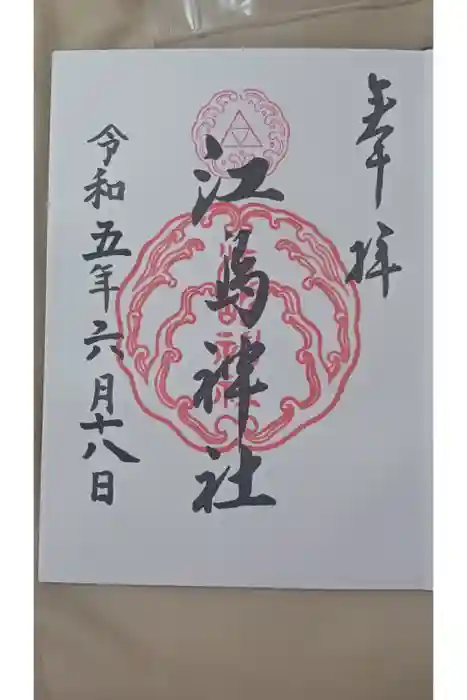 奉拝
江島神社
令和五年六月十八日